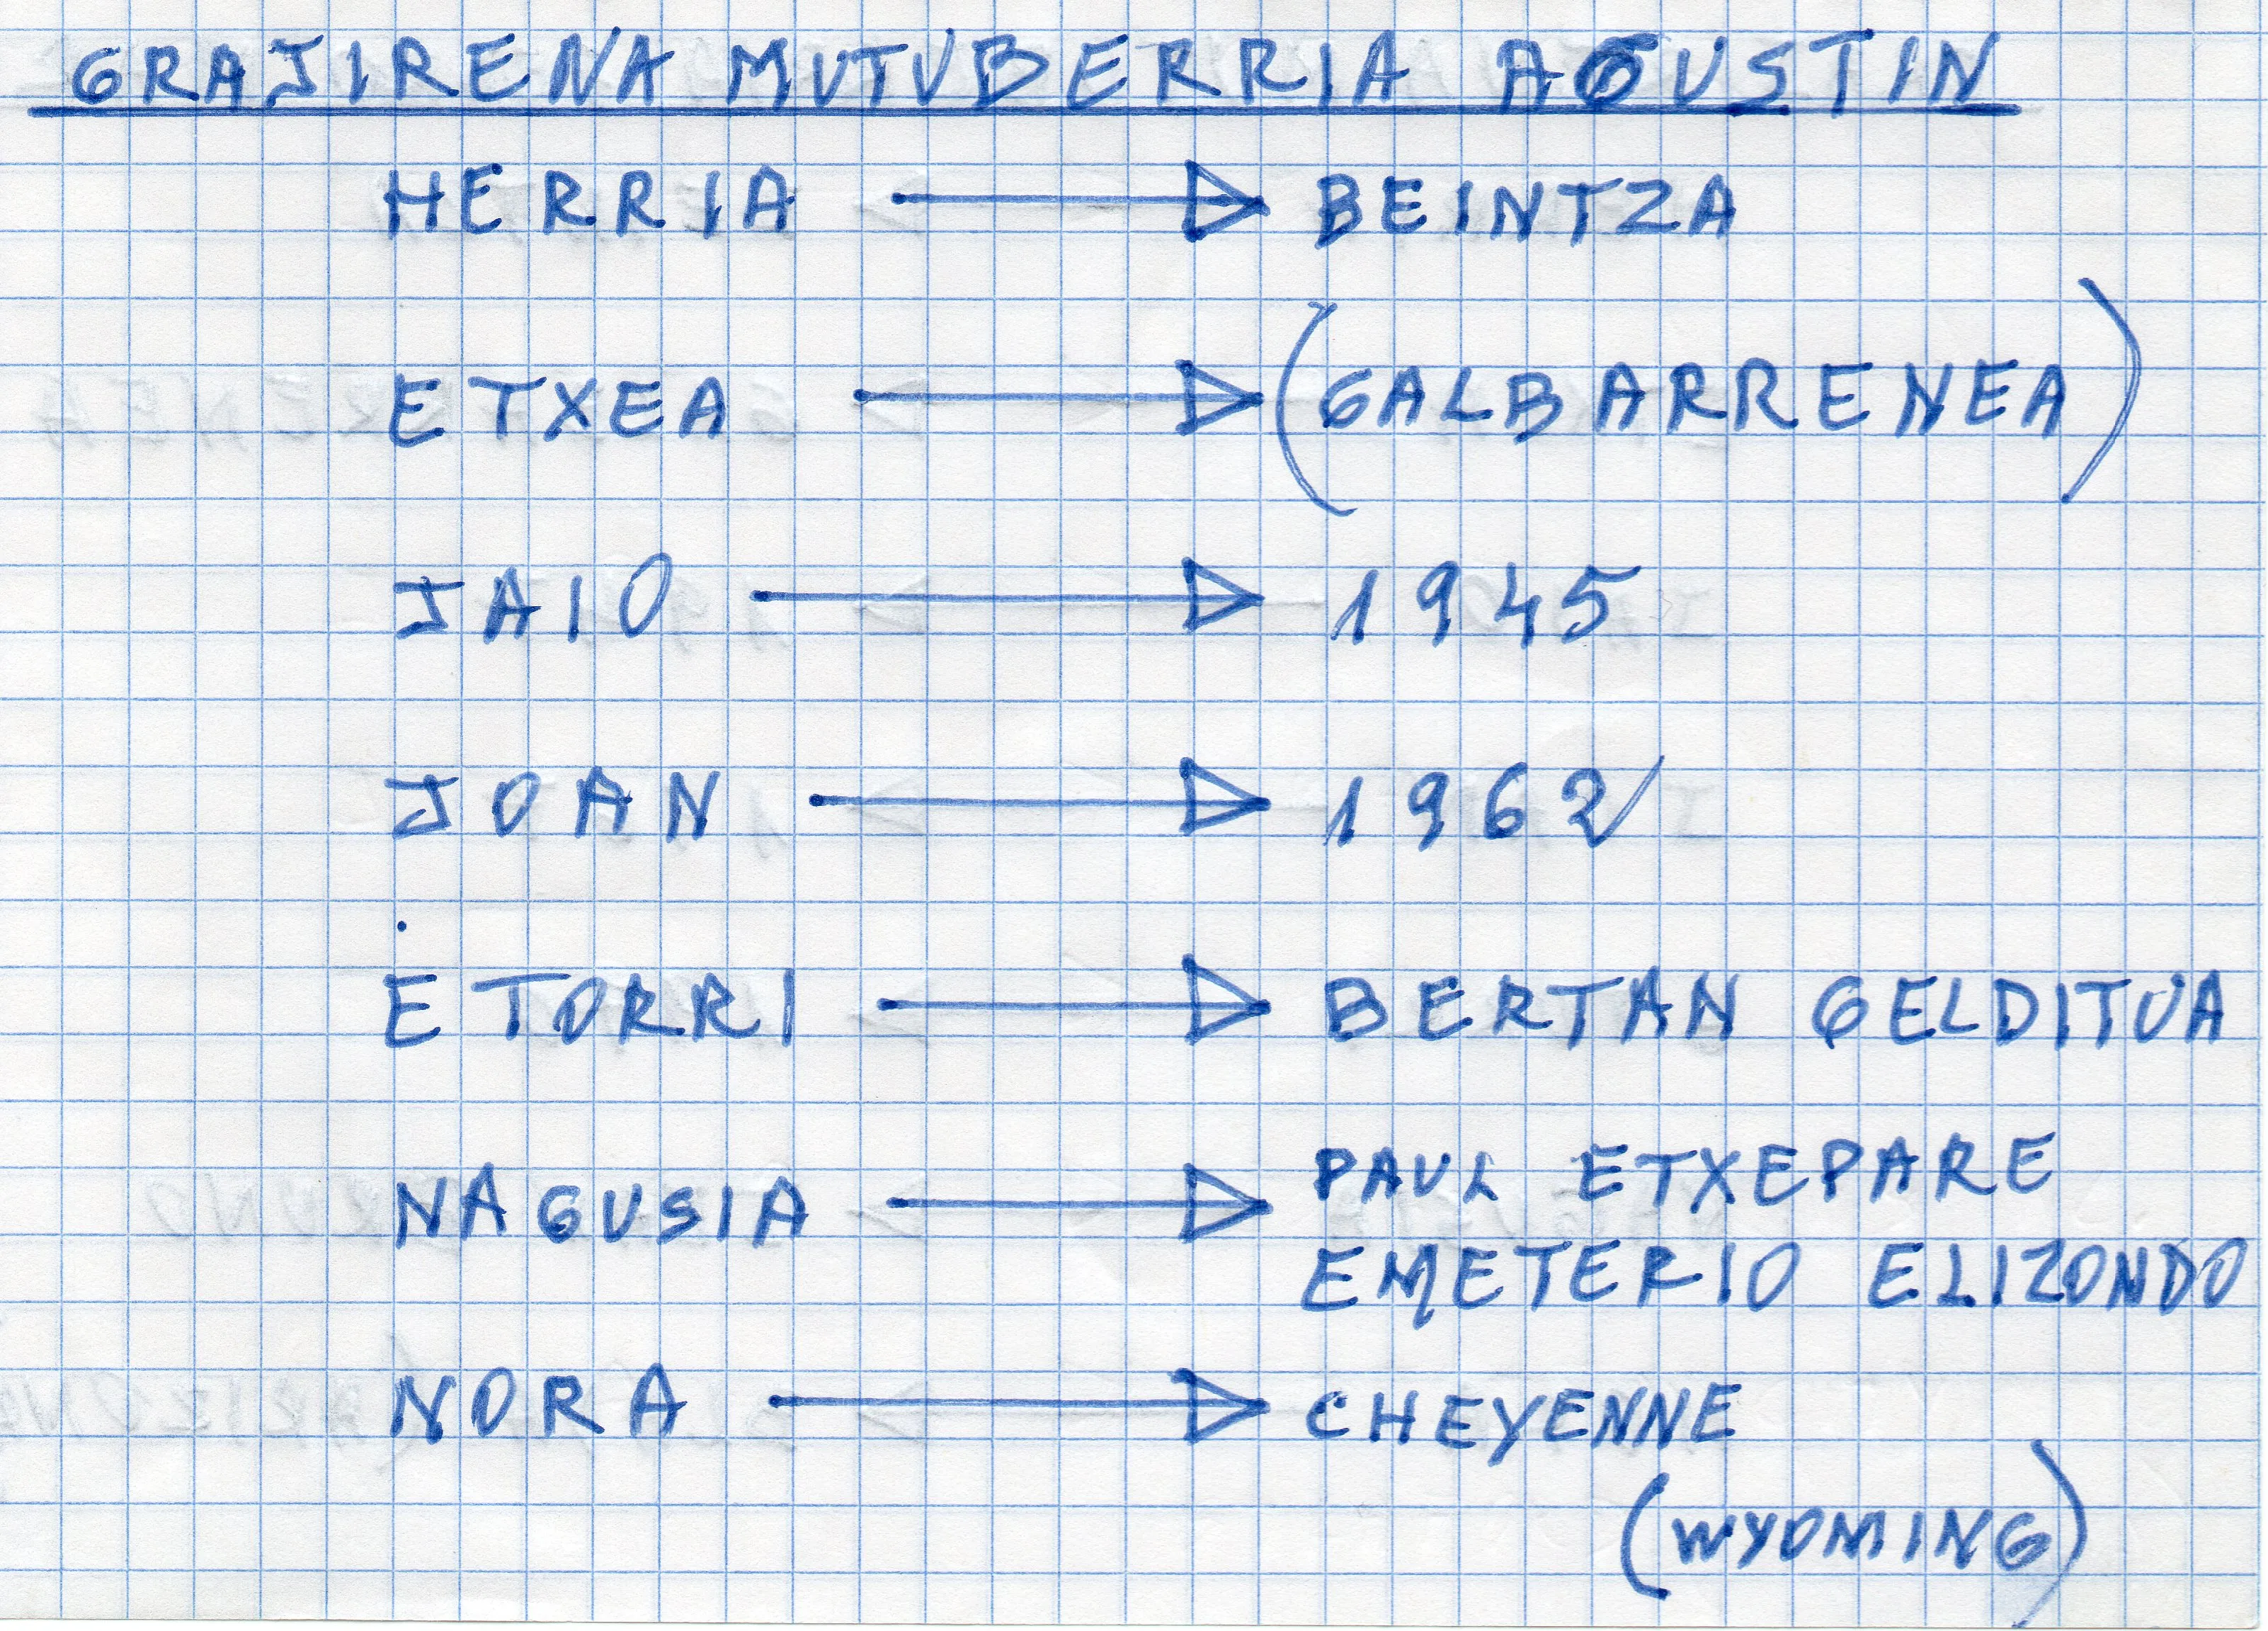 GRAJIRENA MUTUBERRIA AGUSTIN
HERRIA → BEINTZA
ETXEA → (GALBARRENEA)
JAIO → 1945
JOAN → 1962
ETORRI → BERTAN GELDITUA
NAGUSIA → PAUL ETXEPARE
EMETERIO ELIZONDO
NORA → CHEYENNE
(WYOMING)